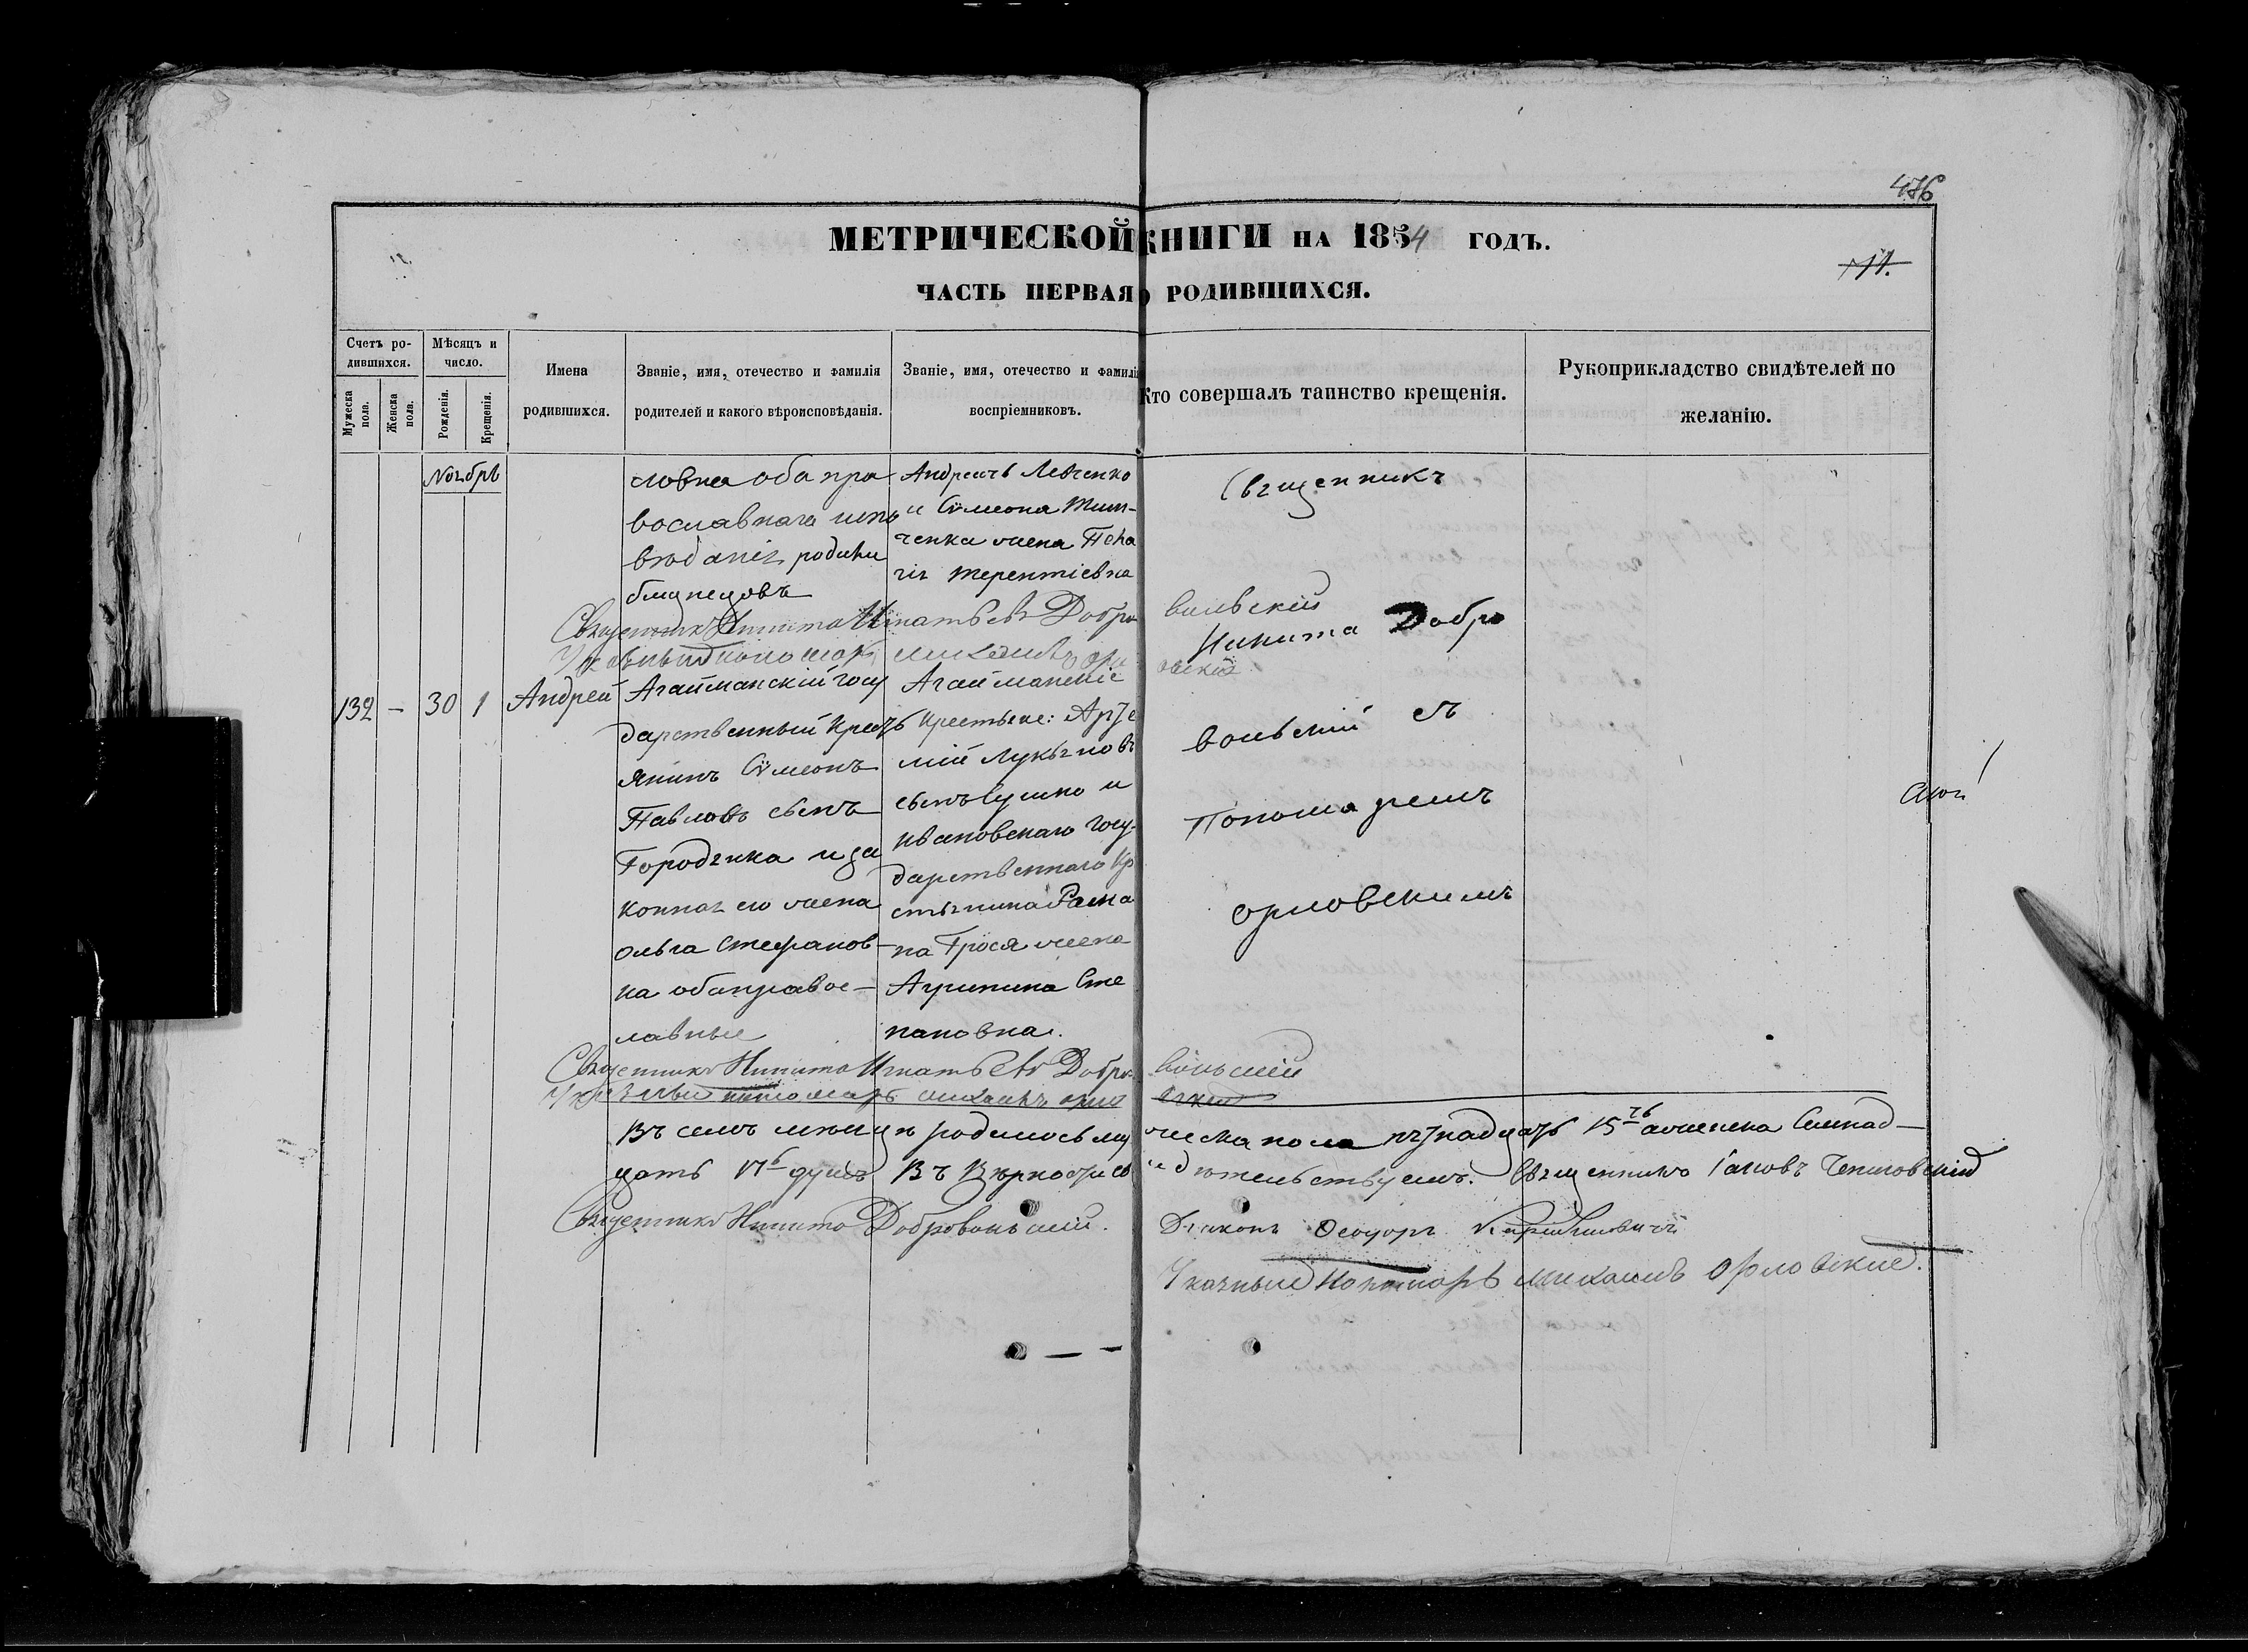 476
МЕТРИЧЕСКОЙ КНИГИ НА 1854 ГОДЪ.
711.
ЧАСТЬ ПЕРВАЯ О РОДИВШИХСЯ.
Счетъ ро-
дившихся.
Мужеска пола.
Женска пола.
Мѣсяцъ и
число.
Рожденія.
Крещенія.
Имена
родившихся.
Званіе, имя, отечество и фамилія
родителей и какого вѣроисповѣданія.
Званіе, имя, отечество и фамилія
воспріемниковъ.
Кто совершалъ таинство крещенія.
Рукоприкладство свидѣтелей по
желанію.
Ноябрь
ловна оба пра
вославнаго испо
вѣданія родили
близнецовъ
Андреичъ Левченко
и Сѵмеона Тим-
ченка жена Пела
гія Терентіевна
Священникъ
Никита Добро
вольскій съ
Пономаремъ
Орловскимъ
Священникъ Никита Игнатьевъ Добро вольскій
Указный пономарь Михаилъ Орловскій
132 — 30 1 Андрей
Агайманскій госу
дарственный кресть
янинъ Сѵмеонъ
Павловъ сынъ
Городянка и за
конная его жена
Ольга Стефанов-
на оба правос-
лавные
Агайманскіе
крестьяне: Арте
мій Лукьяновъ
сынъ Сушко и
Ивановскаго госу-
дарственнаго кр
стьянина Рама
на Грося жена
Агрипина Сте
пановна.
Священникъ Никита Игнатьевъ Добро- вольскій
Указный пономарь Михаилъ Орло вскій
Въ семъ мѣсяцѣ родилось му жеска пола пятнадцать 15ть а женска семнад-
цать 17ть душъ Въ вѣрности св идѣтельствуемъ. Священникъ Іаковъ
Священникъ Никита Добровольскій. Діаконъ Ѳеодоръ
Указный Пономарь Михаилъ Орловскій.